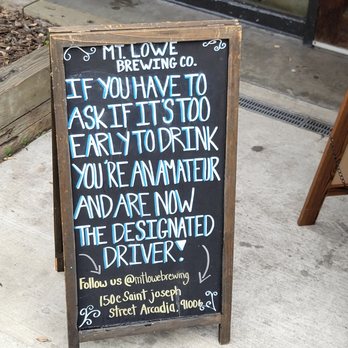 MT. LOWE
BREWING CO.
IF YOU HAVE TO
ASK IF IT'S TOO
EARLY TO DRINK
YOU'RE AN AMATEUR
AND ARE NOW
THE DESIGNATED
DRIVER!
Follow us @mtlowebrewing
150 e Saint joseph
street Arcadia, 91006